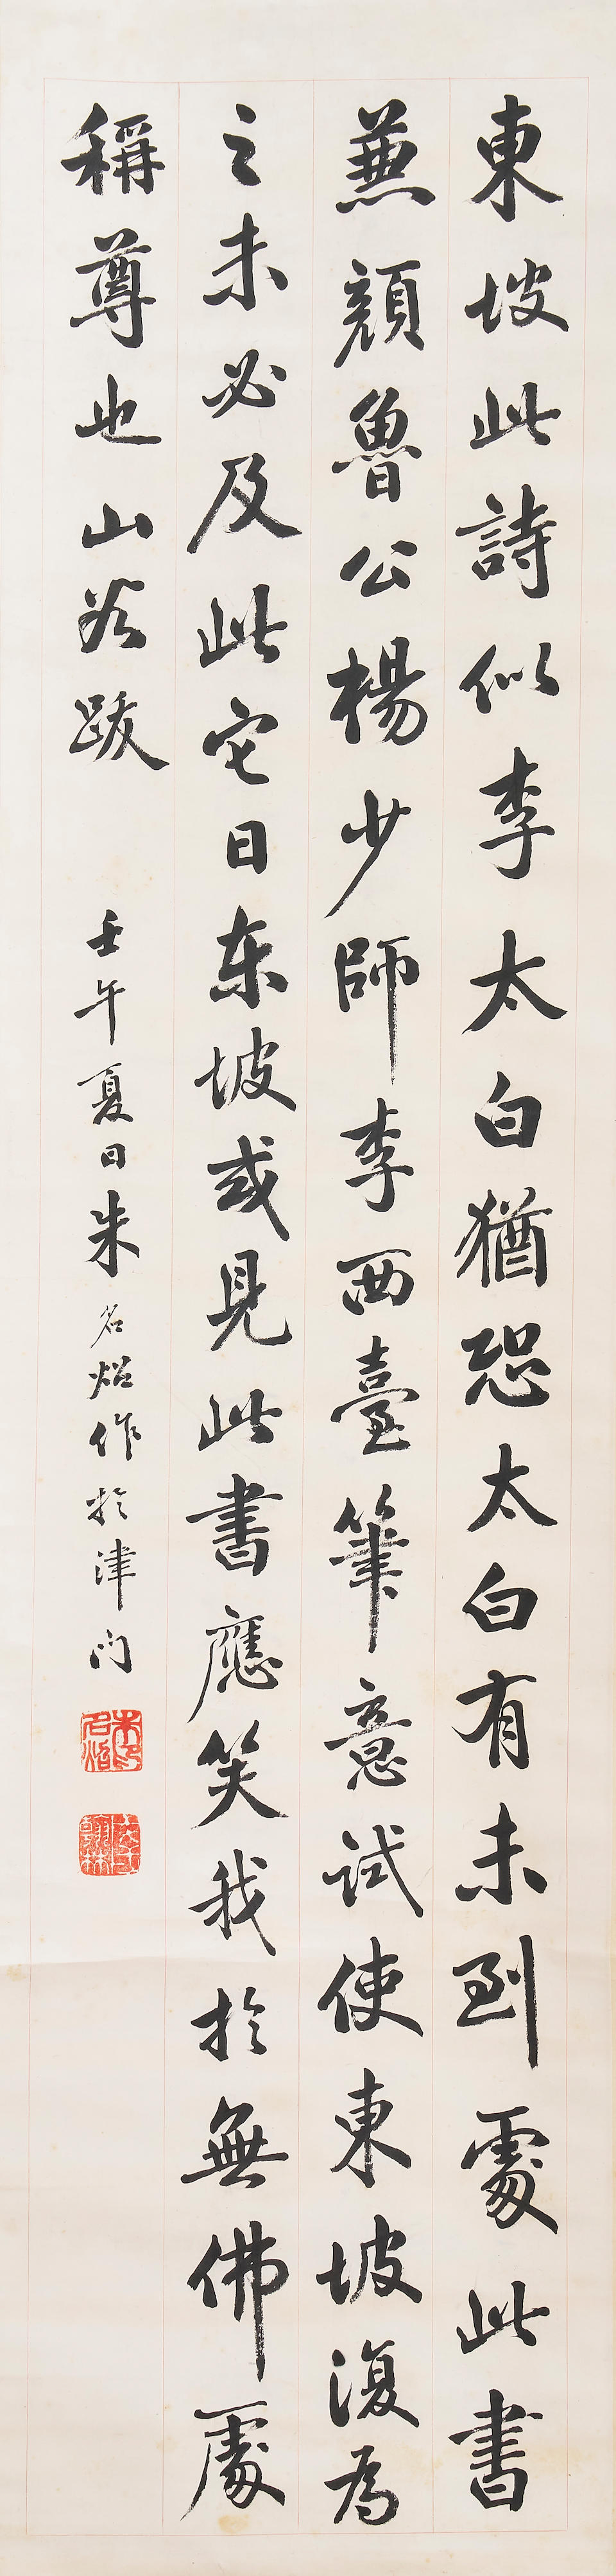 東坡此詩似李太白猶恐太白有未到處此書
兼顏魯公楊少師李西臺筆意試使東坡復為
之未必及此它日东坡或見此書應笑我於無佛處
稱尊也 山谷跋
壬午夏日朱名焰作於津门